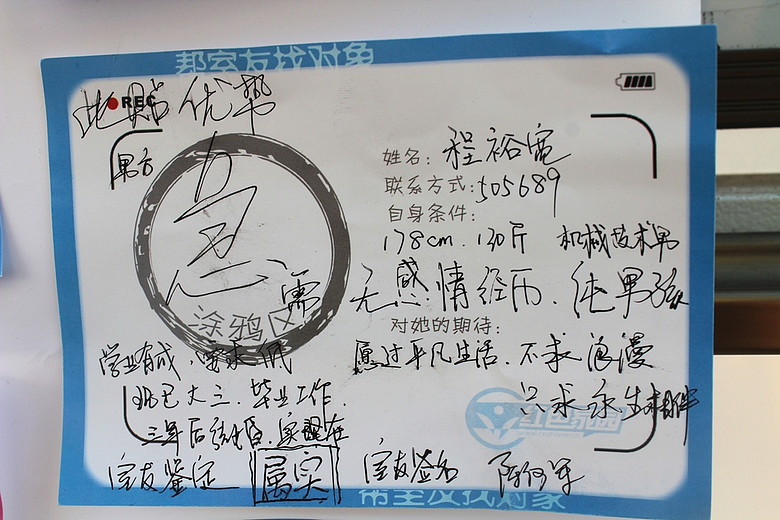 帮室友找对象
REC
此贴优势
男方
急
需
涂鸦区
姓名：程裕宽
联系方式：505689
自身条件：
178cm．130斤 机械技术男
无感情经历．纯男孩
对她的期待：
愿过平凡生活．不求浪漫
只求永生相伴
学业有成、要求低
现已大三．毕业工作．
三年后结婚．
室友鉴定 属实 室友签名
帮室友找对象